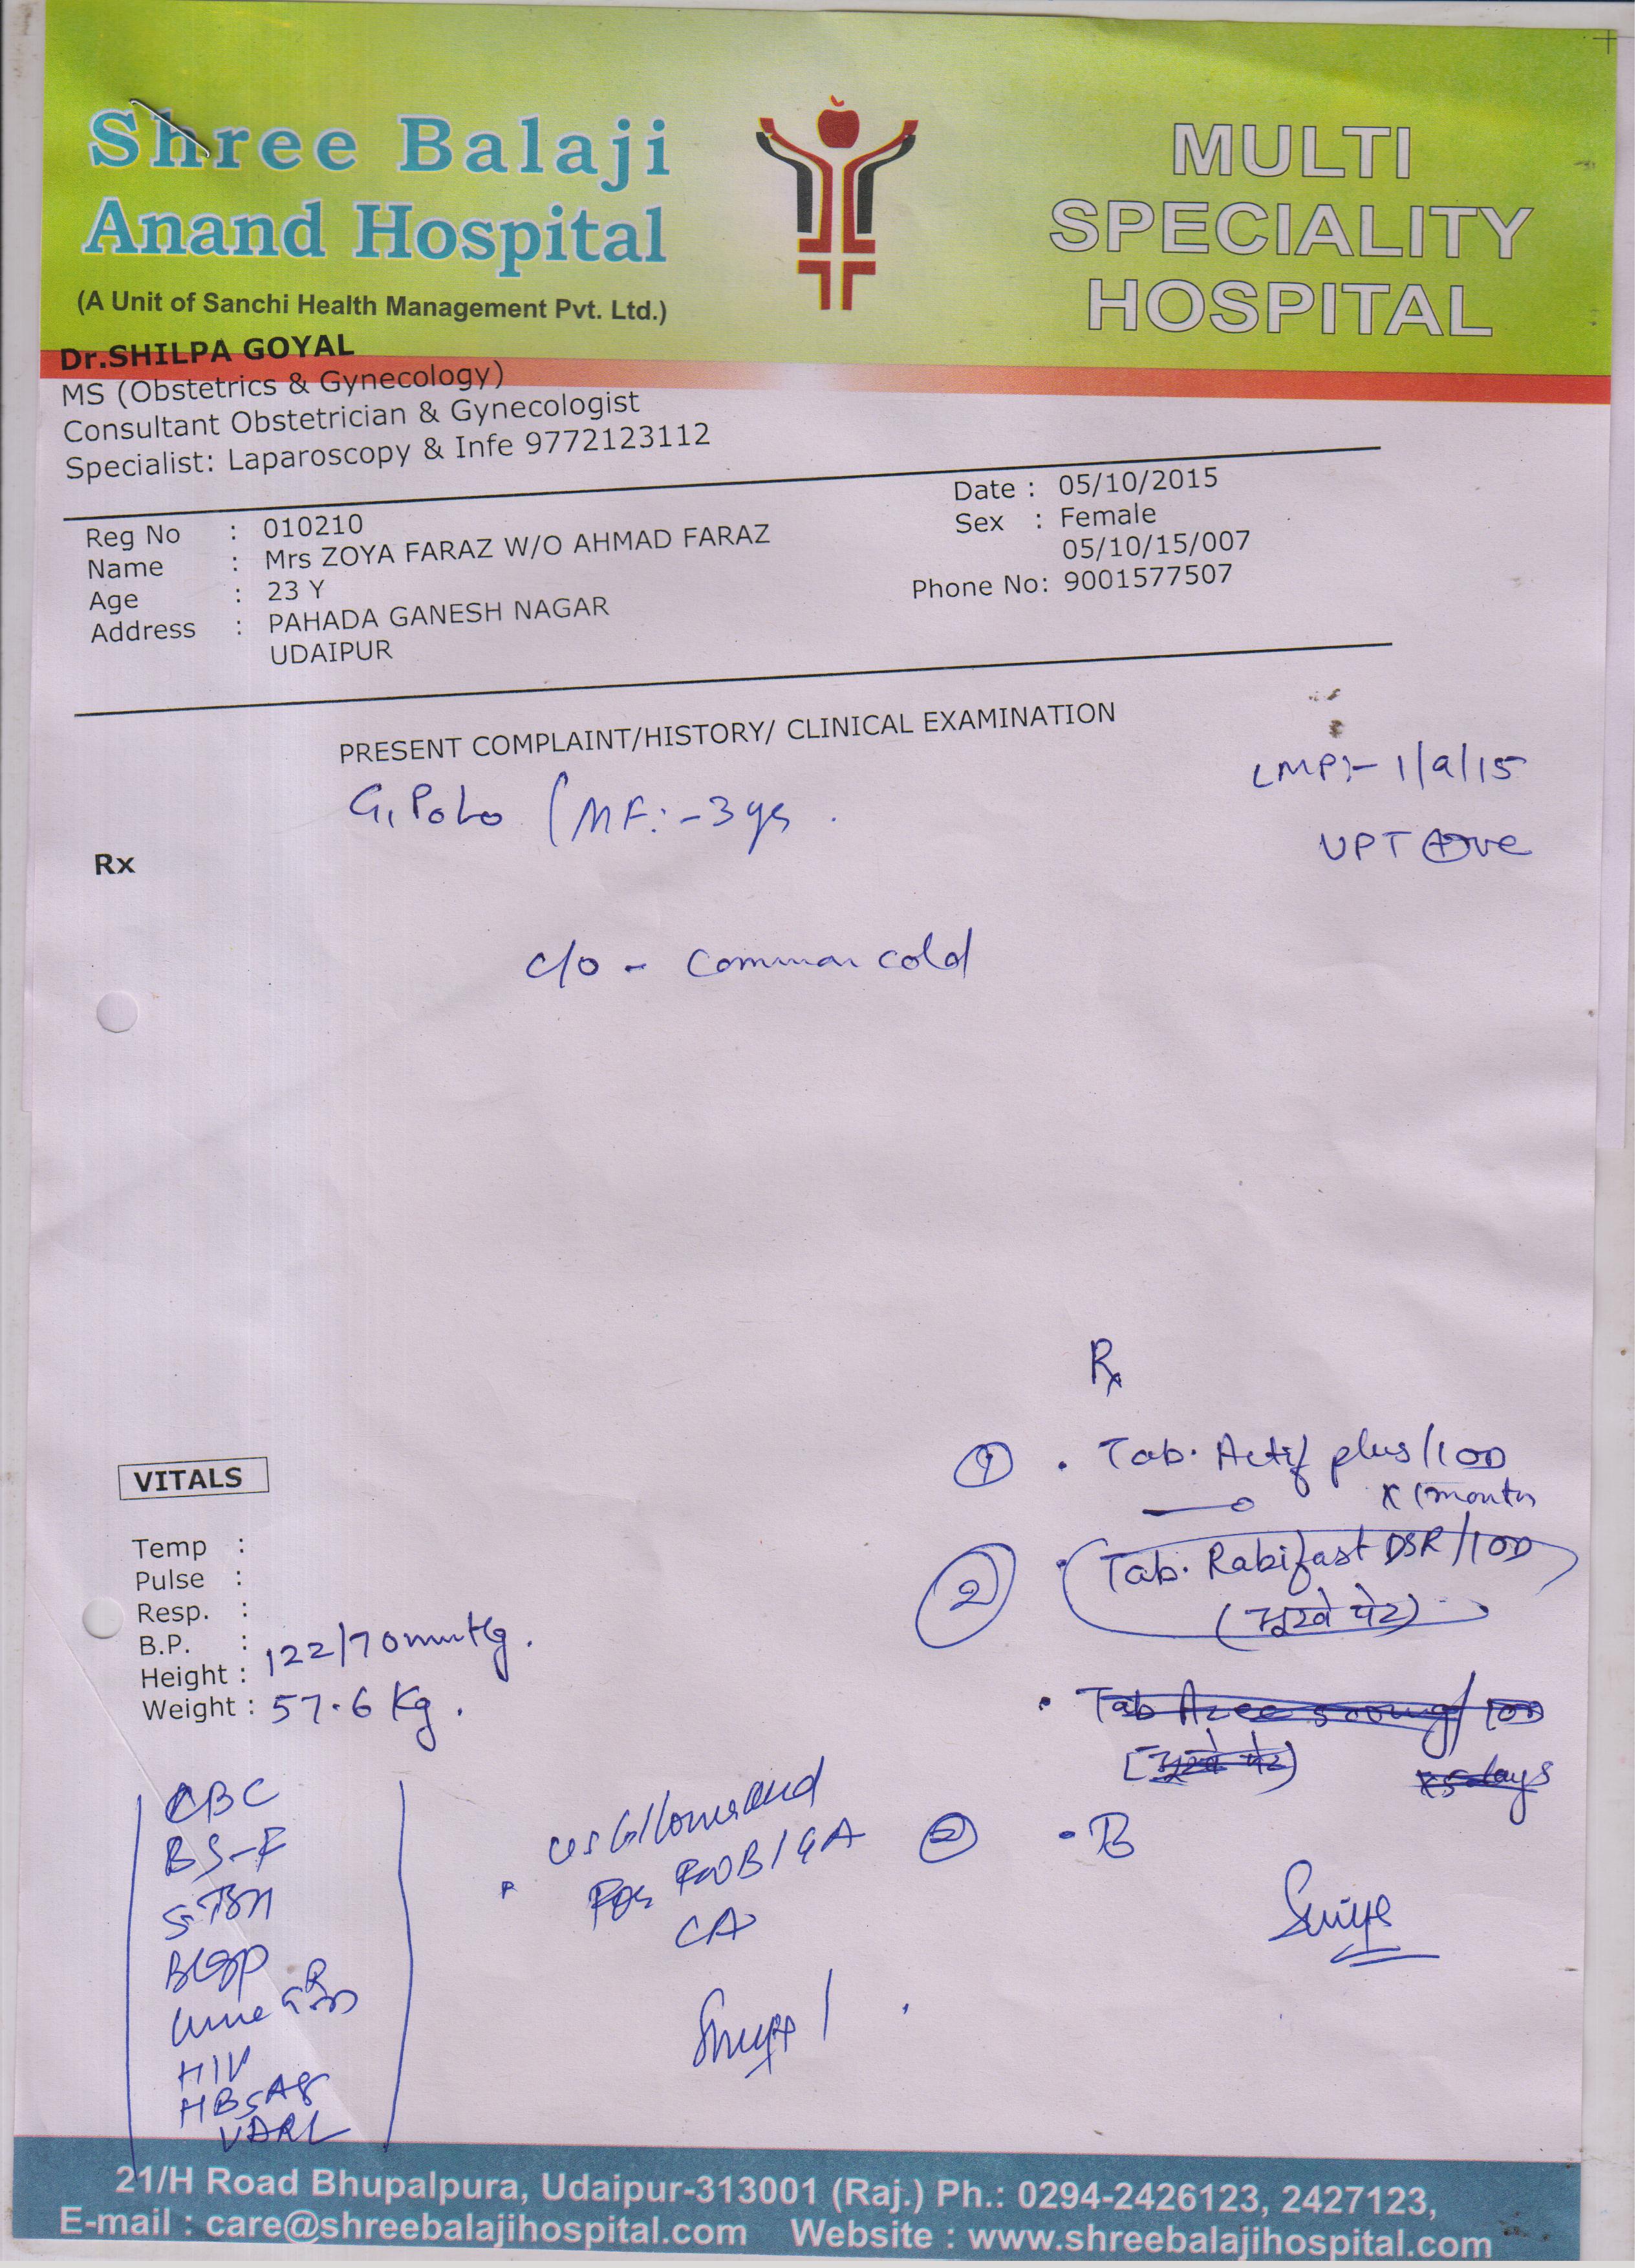 Shree Balaji
Anand Hospital
(A Unit of Sanchi Health Management Pvt. Ltd.)
MULTI
SPECIALITY
HOSPITAL
Dr.SHILPA GOYAL
MS (Obstetrics & Gynecology)
Consultant Obstetrician & Gynecologist
Specialist: Laparoscopy & Infe 9772123112
Date : 05/10/2015
Reg No : 010210
Sex : Female
Name : Mrs ZOYA FARAZ W/O AHMAD FARAZ
05/10/15/007
Age : 23 Y
Phone No: 9001577507
Address : PAHADA GANESH NAGAR
UDAIPUR
PRESENT COMPLAINT/HISTORY/ CLINICAL EXAMINATION
LMP:- 1/9/15
G1P0L0 (MF:-3ys
UPT ⊕ve
Rx
c/o - Common cold
Rx
① . Tab. Actif plus/1OD
x 1month
② . Tab. Rabifast DSR/1OD
(भूखे पेट)
. Tab Azee 500mg/1OD
(भूखे पेट)
x5days
VITALS
Temp :
Pulse :
Resp. :
B.P. : 122/70mmHg.
Height :
Weight : 57.6 Kg.
CBC
BS-F
S.TSH
BGRh
Urine
HIV
HBsAg
VDRL
CA
21/H Road Bhupalpura, Udaipur-313001 (Raj.) Ph.: 0294-2426123, 2427123,
E-mail : care@shreebalajihospital.com Website : www.shreebalajihospital.com